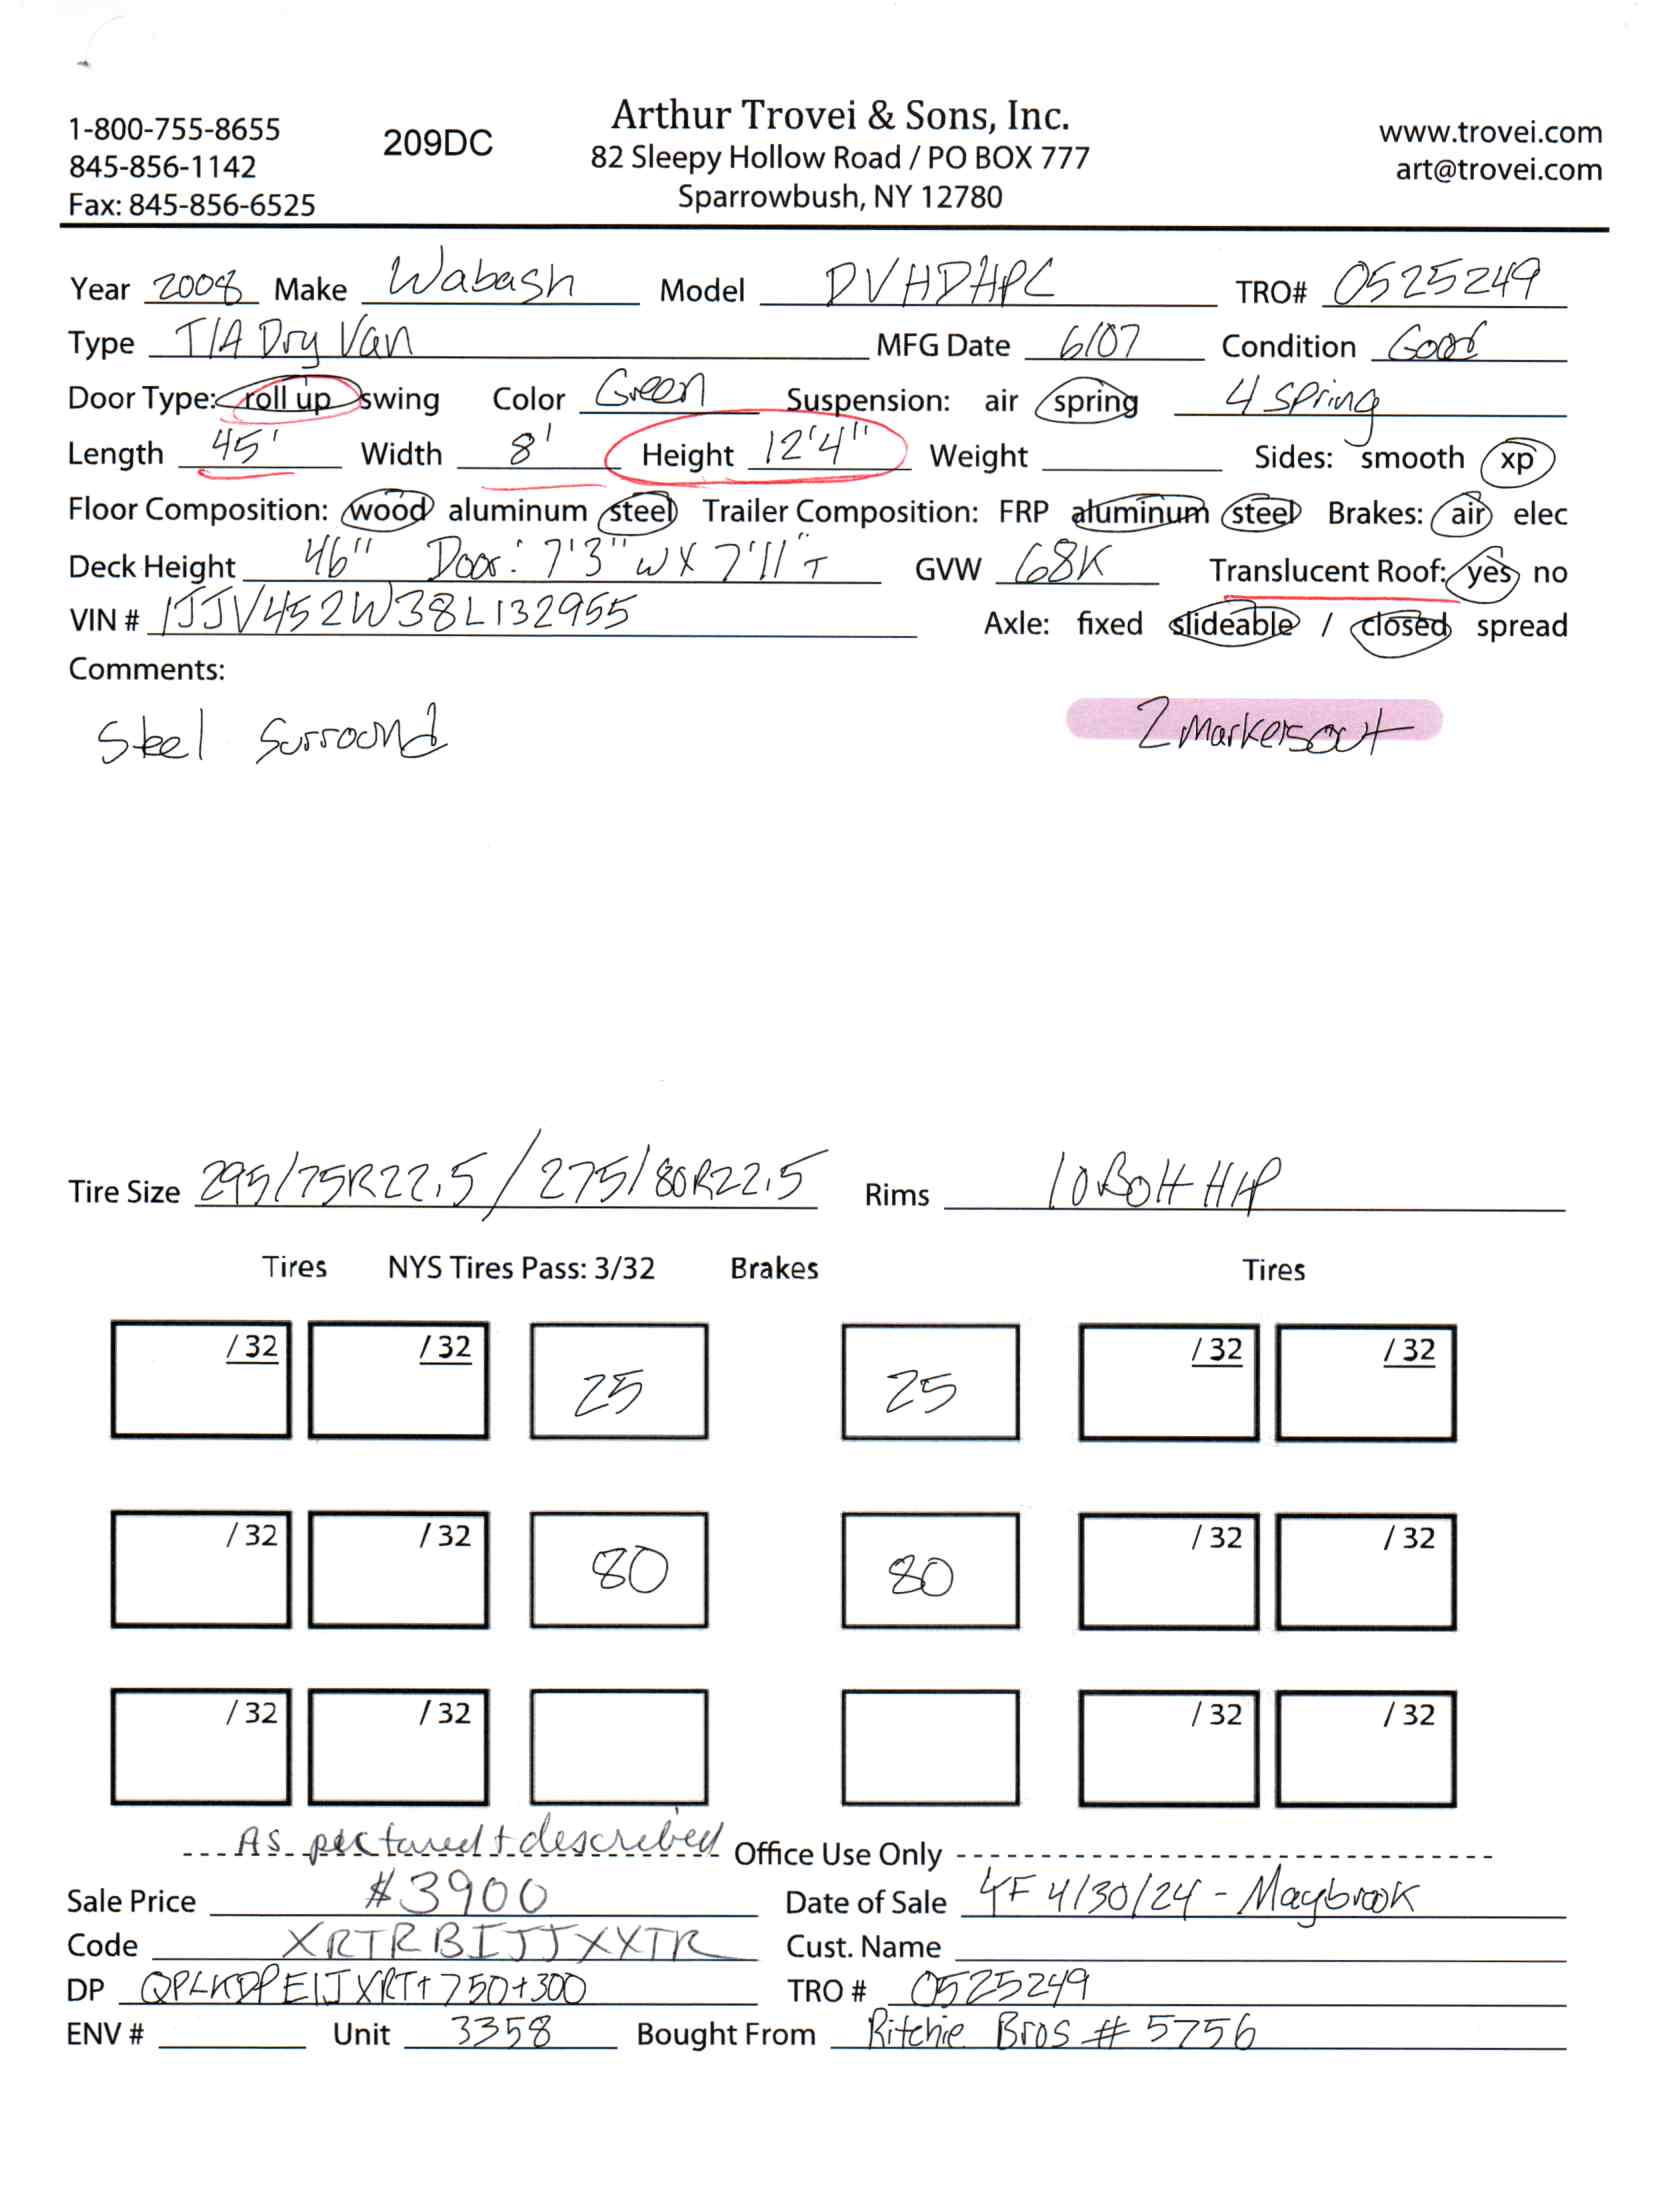 Arthur Trovei & Sons, Inc.
1-800-755-8655 209DC 82 Sleepy Hollow Road / PO BOX 777 www.trovei.com
845-856-1142 Sparrowbush, NY 12780 art@trovei.com
Fax: 845-856-6525
Year 2008 Make Wabash Model DVHDHPC TRO# 0525249
Type T/A Dry Van MFG Date 6/07 Condition Good
Door Type: roll up swing Color Green Suspension: air spring 4 spring
Length 45' Width 8' Height 12'4" Weight Sides: smooth xp
Floor Composition: wood aluminum steel Trailer Composition: FRP aluminum steel Brakes: air elec
Deck Height 46" Door: 7'3" W X 7'11" T GVW 68K Translucent Roof: yes no
VIN # 1JJV452W38L132955 Axle: fixed slideable / closed spread
Comments:
Steel Surround 2 Markers out
Tire Size 295/75R22.5 / 275/80R22.5 Rims 10 Bolt H/P
Tires NYS Tires Pass: 3/32 Brakes Tires
/ 32 / 32 25 25 / 32 / 32
/ 32 / 32 80 80 / 32 / 32
/ 32 / 32 / 32 / 32
As pictured + described Office Use Only
Sale Price $3900 Date of Sale YF 4/30/24 - Maybrook
Code XRTRBIJJXXTR Cust. Name
DP QPLKDPEIJXRT+ 750+300 TRO # 0525249
ENV # Unit 3358 Bought From Ritchie Bros # 5756